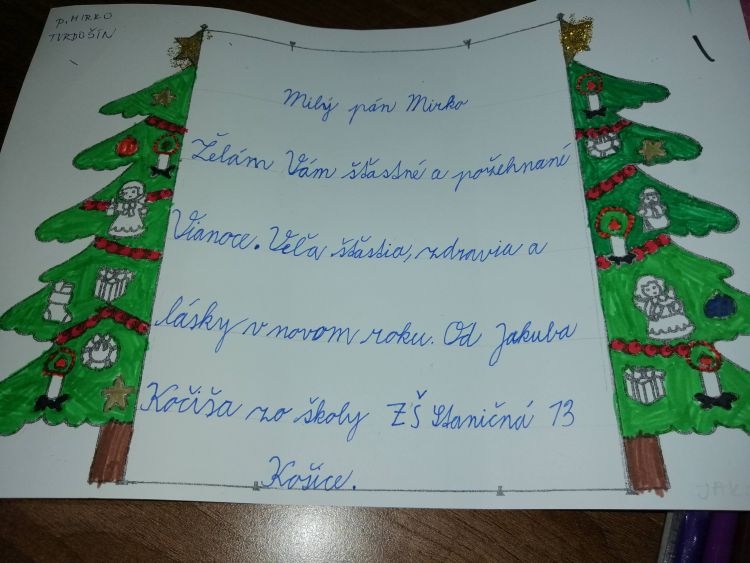 p. MIRKO
TVRDOŠÍN
Milý pán Mirko
Želám Vám šťastné a požehnané
Vianoce. Veľa šťastia, zdravia a
lásky v novom roku. Od Jakuba
Kočiša zo školy ZŠ Staničná 13
Košice.